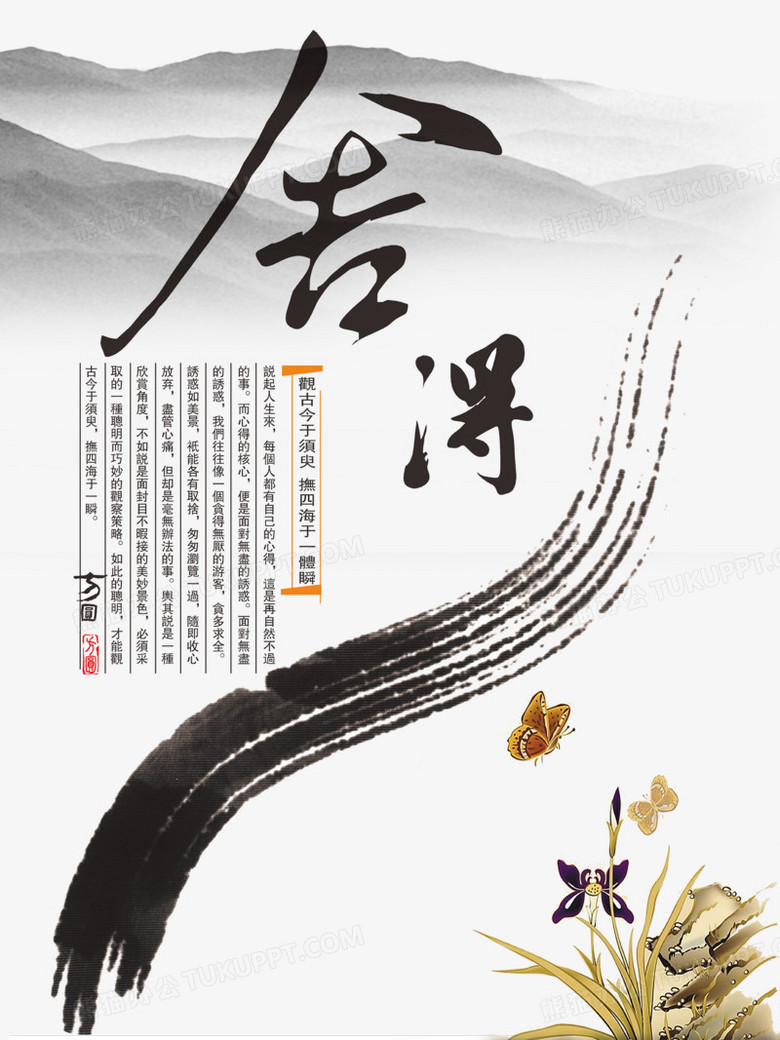 舍
得
觀古今于須臾 撫四海于一體瞬
説起人生來，每個人都有自己的心得，這是再自然不過
的事。而心得的核心，便是面對無盡的誘惑。面對無盡
的誘惑，我們往往像一個貪得無厭的游客，貪多求全。
誘惑如美景，衹能各有取捨，匆匆瀏覽一過，隨即收心
放弃，盡管心痛，但却是毫無辦法的事。輿其説是一種
欣賞角度，不如説是面封目不暇接的美妙景色，必須采
取的一種聰明而巧妙的觀察策略。如此的聰明，才能觀
古今于須臾，撫四海于一瞬。
方圓
方圓
熊猫办公 TUKUPPT.COM